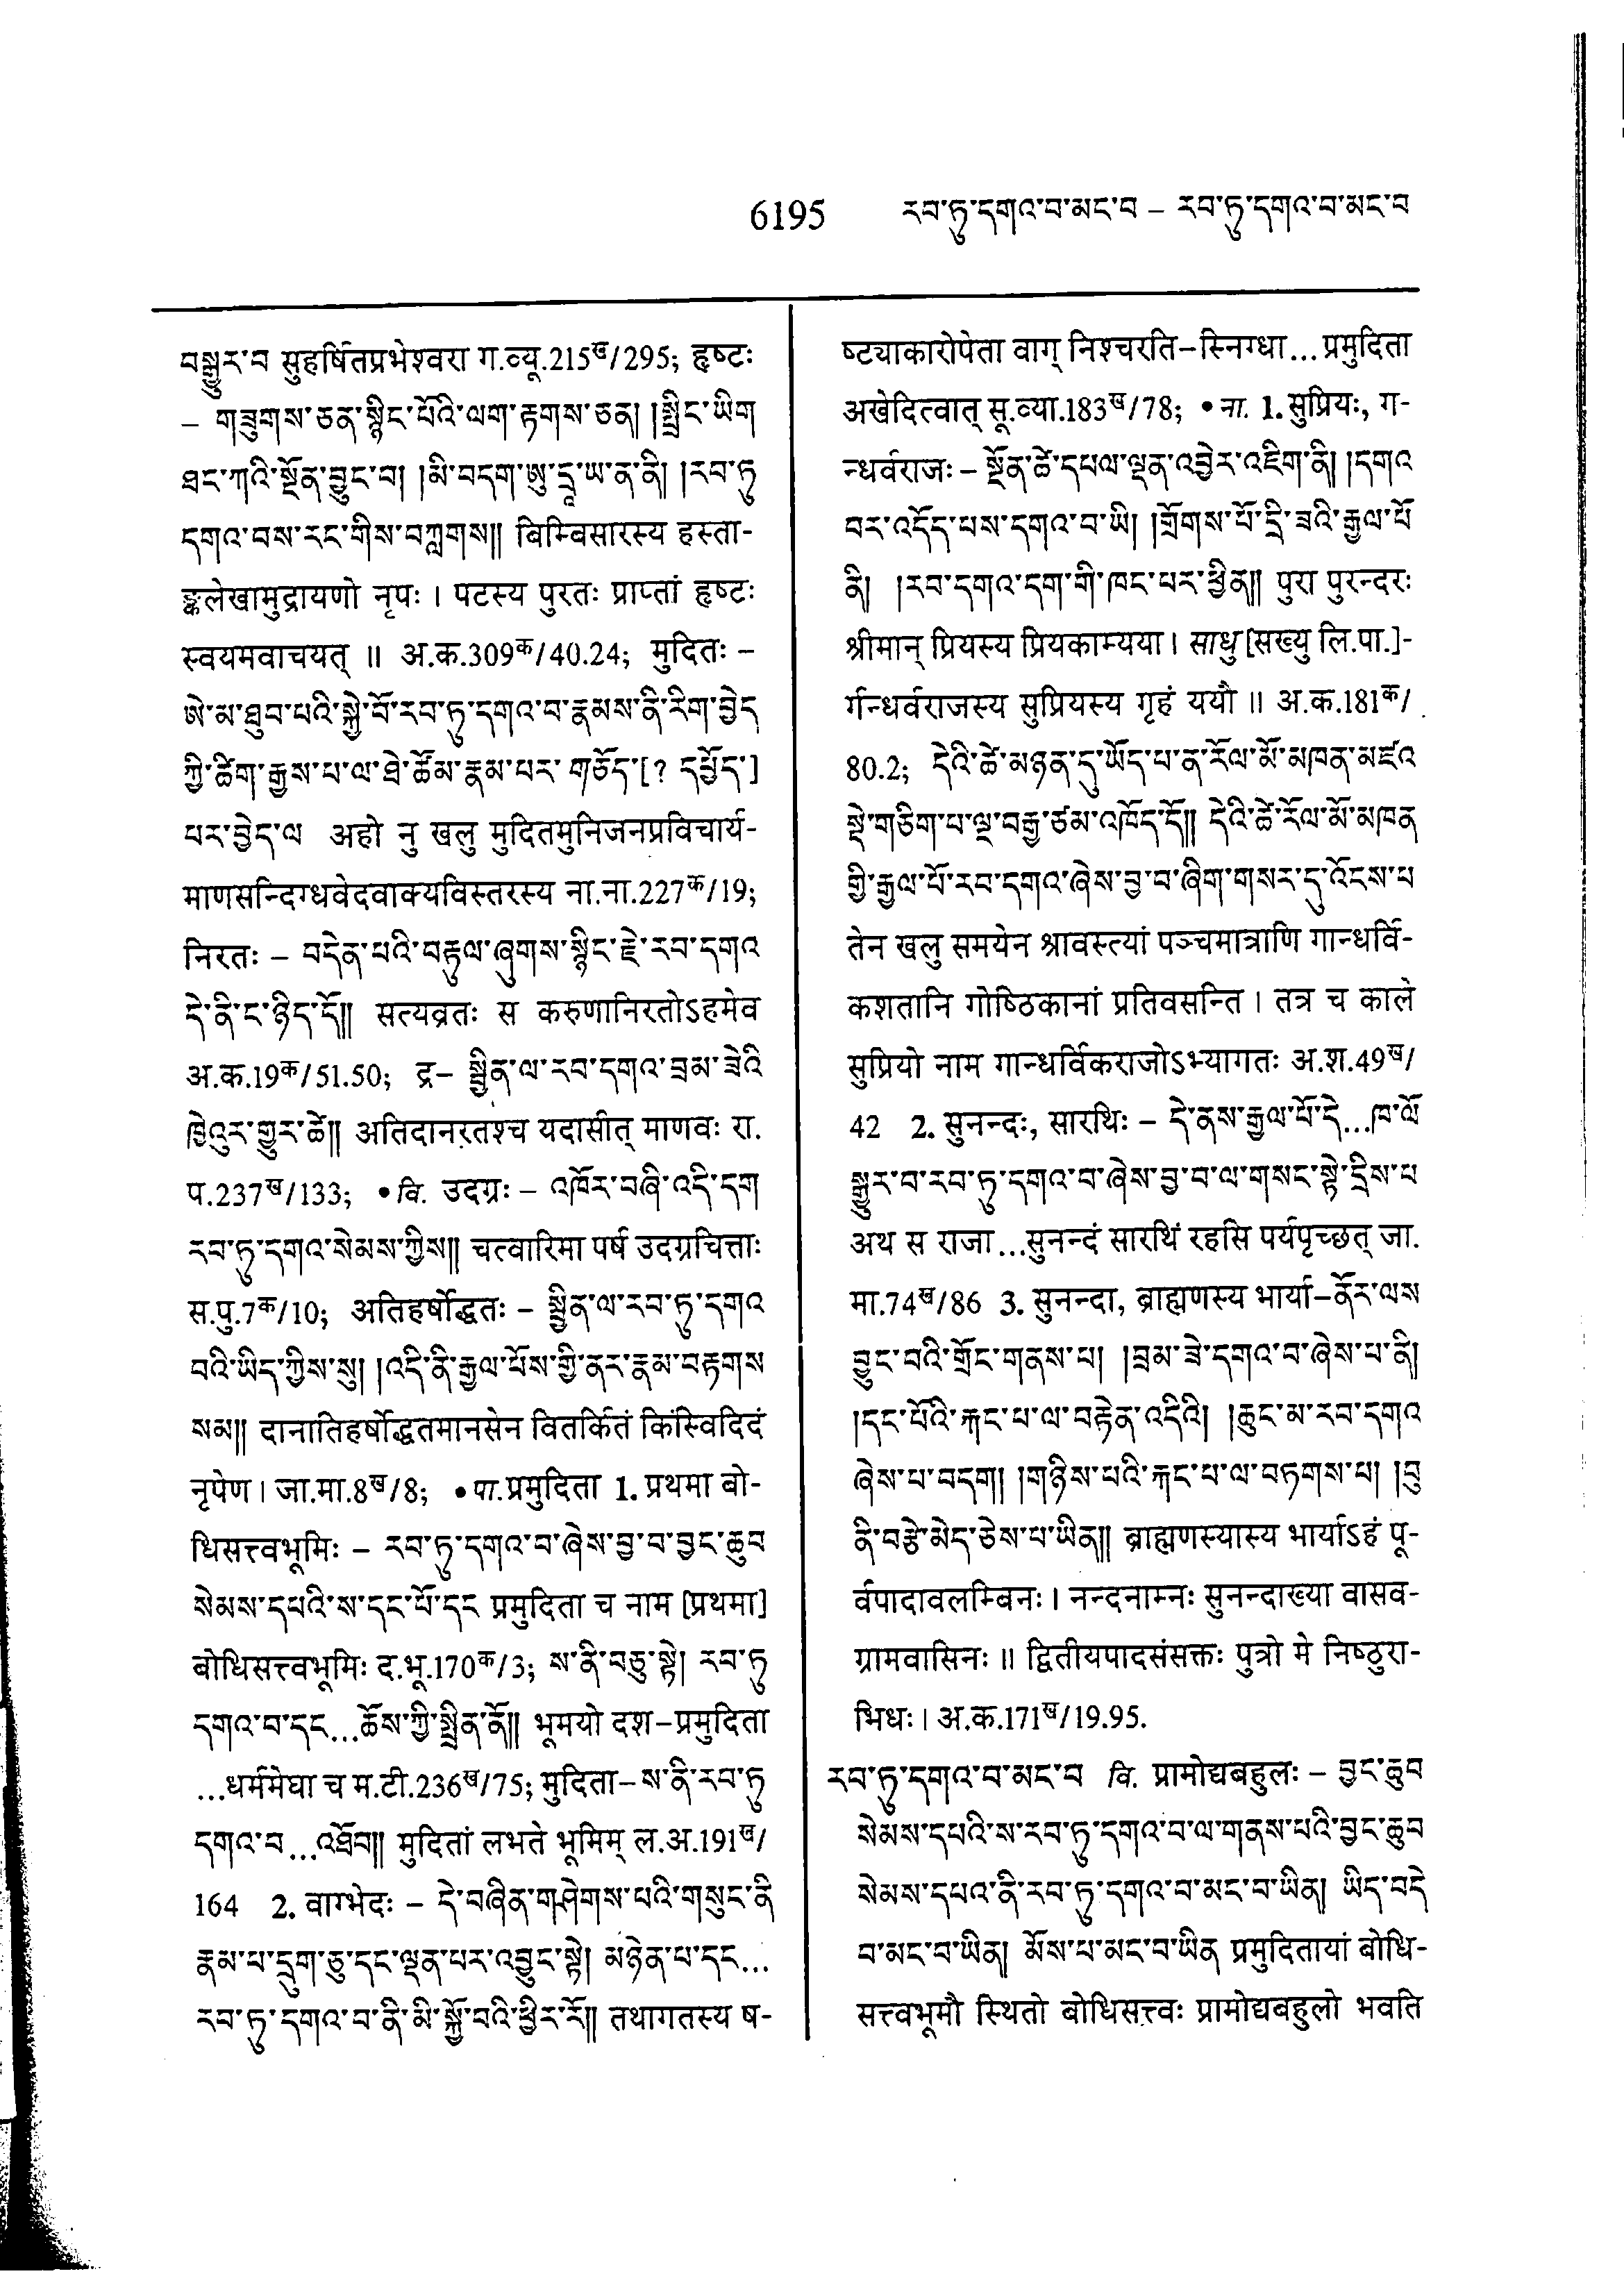 6195 རབ་ཏུ་དགའ་བ་མང་བ – རབ་ཏུ་དགའ་བ་མང་བ
བསྒྱུར་བ सुहर्षितप्रभेश्वरा ग.व्यू.215ख/295; हृष्टः
– གཟུགས་ཅན་སྙིང་པོའི་ལག་རྟགས་ཅན། །སྤྲིང་ཡིག
ཐང་ཀའི་སྔོན་བྱུང་བ། །མི་བདག་ཨུ་དྲཱ་ཡ་ན་ནི། །རབ་ཏུ
དགའ་བས་རང་གིས་བཀླགས།། बिम्बिसारस्य हस्ता-
ङ्कलेखामुद्रायणो नृपः । पटस्य पुरतः प्राप्तां हृष्टः
स्वयमवाचयत् ॥ अ.क.309क/40.24; मुदितः –
ཨེ་མ་ཐུབ་པའི་སྐྱེ་བོ་རབ་ཏུ་དགའ་བ་རྣམས་ནི་རིག་བྱེད
ཀྱི་ཚིག་རྒྱས་པ་ལ་ཐེ་ཚོམ་རྣམ་པར་གཅོད་[? དཔྱོད་]
པར་བྱེད་ལ अहो नु खलु मुदितमुनिजनप्रविचार्य-
माणसन्दिग्धवेदवाक्यविस्तरस्य ना.ना.227क/19;
निरतः – བདེན་པའི་བརྟུལ་ཞུགས་སྙིང་རྗེ་རབ་དགའ
དེ་ནི་ང་ཉིད་དོ།། सत्यव्रतः स करुणानिरतोऽहमेव
अ.क.19क/51.50; द्र– སྦྱིན་ལ་རབ་དགའ་བྲམ་ཟེའི
ཁྱེའུར་གྱུར་ཚེ།། अतिदानरतश्च यदासीत् माणवः रा.
प.237ख/133; • वि. उदग्रः – འཁོར་བཞི་འདི་དག
རབ་ཏུ་དགའ་སེམས་ཀྱིས།། चत्वारिमा पर्ष उदग्रचित्ताः
स.पु.7क/10; अतिहर्षोद्धतः – སྦྱིན་ལ་རབ་ཏུ་དགའ
བའི་ཡིད་ཀྱིས་སུ། །འདི་ནི་རྒྱལ་པོས་གྱི་ནར་རྣམ་བརྟགས
སམ།། दानातिहर्षोद्धतमानसेन वितर्कितं किंस्विदिदं
नृपेण । जा.मा.8ख/8; • पा. प्रमुदिता 1. प्रथमा बो-
धिसत्त्वभूमिः – རབ་ཏུ་དགའ་བ་ཞེས་བྱ་བ་བྱང་ཆུབ
སེམས་དཔའི་ས་དང་པོ་དང प्रमुदिता च नाम [प्रथमा]
बोधिसत्त्वभूमिः द.भू.170क/3; ས་ནི་བཅུ་སྟེ། རབ་ཏུ
དགའ་བ་དང...ཆོས་ཀྱི་སྤྲིན་ནོ།། भूमयो दश–प्रमुदिता
...धर्ममेघा च म.टी.236ख/75; मुदिता– ས་ནི་རབ་ཏུ
དགའ་བ...འཐོབ།། मुदितां लभते भूमिम् ल.अ.191ख/
164 2. वाग्भेदः – དེ་བཞིན་གཤེགས་པའི་གསུང་ནི
རྣམ་པ་དྲུག་ཅུ་དང་ལྡན་པར་འབྱུང་སྟེ། མཉེན་པ་དང...
རབ་ཏུ་དགའ་བ་ནི་མི་སྐྱོ་བའི་ཕྱིར་རོ།། तथागतस्य ष-
ष्ट्याकारोपेता वाग् निश्चरति–स्निग्धा... प्रमुदिता
अखेदित्वात् सू.व्या.183ख/78; • ना. 1. सुप्रियः, ग-
न्धर्वराजः – སྔོན་ཚེ་དཔལ་ལྡན་འབྱེར་འཇིག་ནི། །དགའ
བར་འདོད་པས་དགའ་བ་ཡི། །གྲོགས་པོ་དྲི་ཟའི་རྒྱལ་པོ
ནི། །རབ་དགའ་དག་གི་ཁང་པར་ཕྱིན།། पुरा पुरन्दरः
श्रीमान् प्रियस्य प्रियकाम्यया । साधु [सख्यु लि.पा.]-
र्गन्धर्वराजस्य सुप्रियस्य गृहं ययौ ॥ अ.क.181क/
80.2; དེའི་ཚེ་མཉན་དུ་ཡོད་པ་ན་རོལ་མོ་མཁན་མཛའ
སྡེ་གཅིག་པ་ལྔ་བརྒྱ་ཙམ་འཁོད་དོ།། དེའི་ཚེ་རོལ་མོ་མཁན
གྱི་རྒྱལ་པོ་རབ་དགའ་ཞེས་བྱ་བ་ཞིག་གསར་དུ་འོངས་པ
तेन खलु समयेन श्रावस्त्यां पञ्चमात्राणि गान्धर्वि-
कशतानि गोष्ठिकानां प्रतिवसन्ति । तत्र च काले
सुप्रियो नाम गान्धर्विकराजोऽभ्यागतः अ.श.49ख/
42 2. सुनन्दः, सारथिः – དེ་ནས་རྒྱལ་པོ་དེ...ཁ་ལོ
སྒྱུར་བ་རབ་ཏུ་དགའ་བ་ཞེས་བྱ་བ་ལ་གསང་སྟེ་དྲིས་པ
अथ स राजा...सुनन्दं सारथिं रहसि पर्यपृच्छत् जा.
मा.74ख/86 3. सुनन्दा, ब्राह्मणस्य भार्या– ནོར་ལས
བྱུང་བའི་གྲོང་གནས་པ། །བྲམ་ཟེ་དགའ་བ་ཞེས་པ་ནི།
།དང་པོའི་རྐང་པ་ལ་བརྟེན་འདིའི། །ཆུང་མ་རབ་དགའ
ཞེས་པ་བདག། །གཉིས་པའི་རྐང་པ་ལ་བཏགས་པ། །བུ
ནི་བརྩེ་མེད་ཅེས་པ་ཡིན།། ब्राह्मणस्यास्य भार्याऽहं पू-
र्वपादावलम्बिनः । नन्दनाम्नः सुनन्दाख्या वासव-
ग्रामवासिनः ॥ द्वितीयपादसंसक्तः पुत्रो मे निष्ठुरा-
भिधः । अ.क.171ख/19.95.
རབ་ཏུ་དགའ་བ་མང་བ वि. प्रामोद्यबहुलः – བྱང་ཆུབ
སེམས་དཔའི་ས་རབ་ཏུ་དགའ་བ་ལ་གནས་པའི་བྱང་ཆུབ
སེམས་དཔའ་ནི་རབ་ཏུ་དགའ་བ་མང་བ་ཡིན། ཡིད་བདེ
བ་མང་བ་ཡིན། མོས་པ་མང་བ་ཡིན प्रमुदितायां बोधि-
सत्त्वभूमौ स्थितो बोधिसत्त्वः प्रामोद्यबहुलो भवति